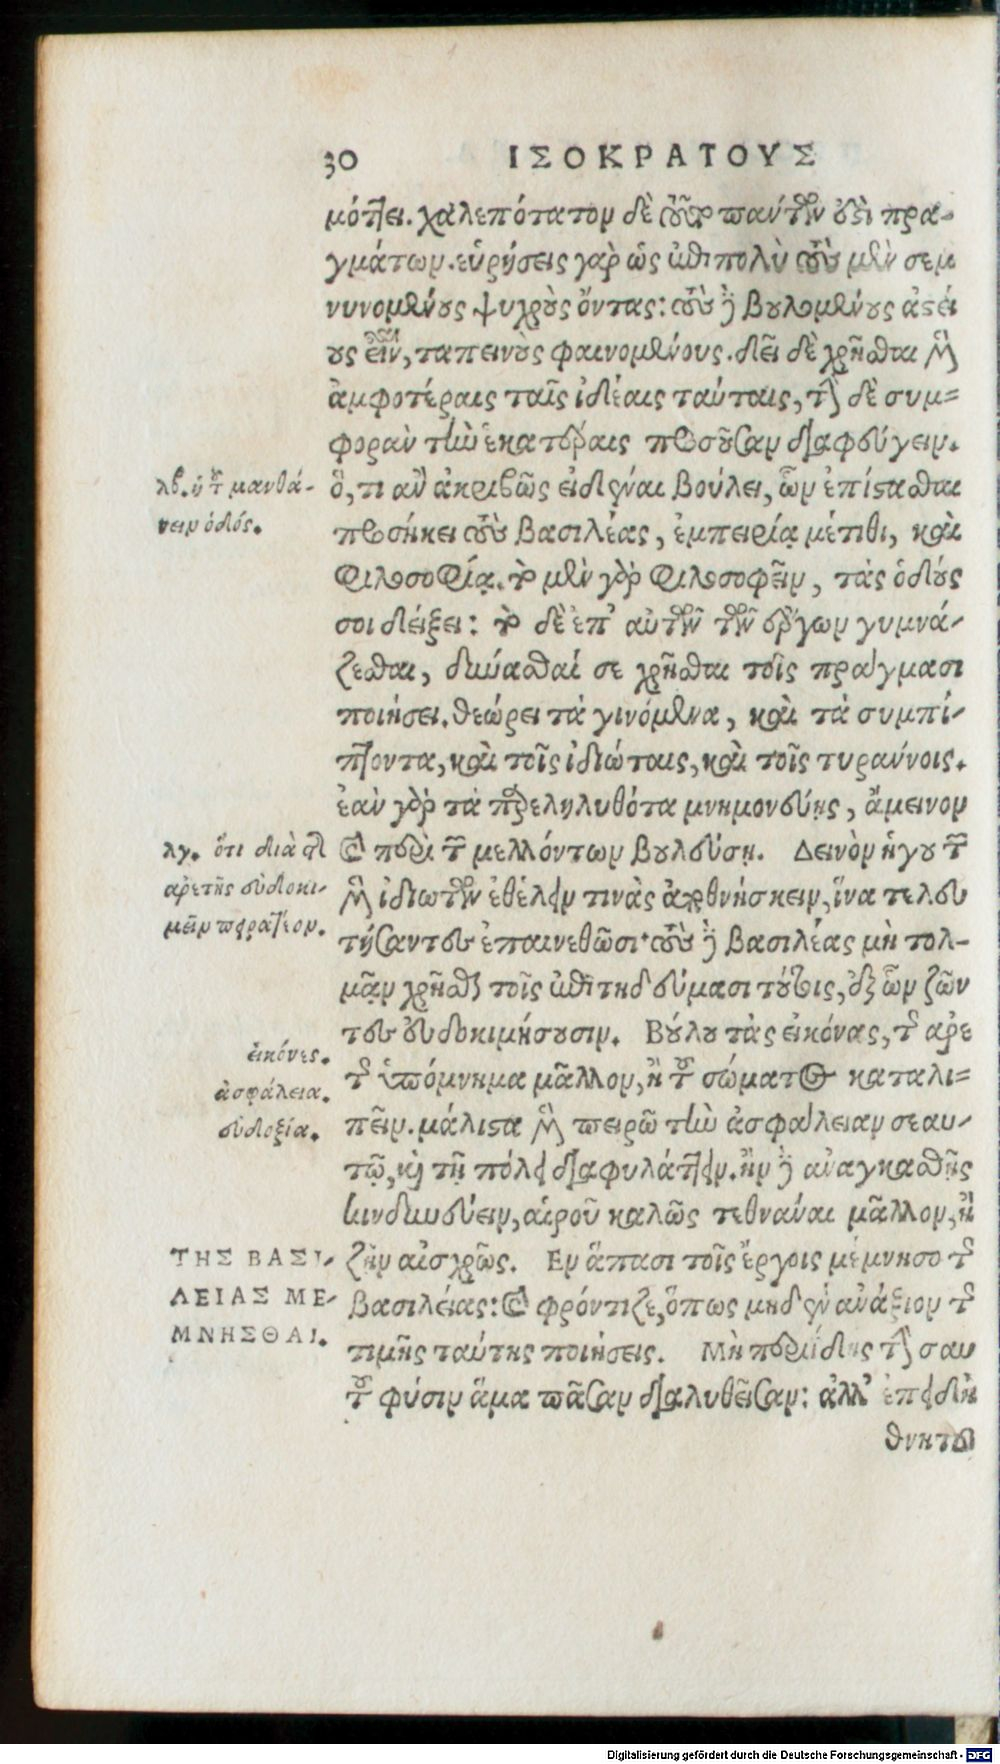 30 ΙΣΟΚΡΑΤΟΥΣ
μόττει. χαλεπότατον δὲ τοῦτο πάντων ὅτι πρα-
γμάτων. εὑρήσεις γὰρ ὡς ἐπιπολὺ τοὺς μὲν σεμ
νυνομένους ψυχροὺς ὄντας: τοὺς δὲ βουλομένους ἀστεί
ους εἶναι, ταπεινοὺς φαινομένους. δεῖ δὲ χρῆσθαι μὲν
ἀμφοτέραις ταῖς ἰδέαις ταύταις, τὴν δὲ συμ=
φορὰν τὴν ἑκατέραις προσοῦσαν διαφεύγειν.
λβ. ἡ τοῦ μανθά-
νειν ὁδός.
ὅ, τι ἂν ἀκριβῶς εἰδέναι βούλει, ὧν ἐπίστασθαι
προσήκει τοὺς βασιλέας, ἐμπειρίᾳ μέτιθι, καὶ
φιλοσοφίᾳ. τὸ μὲν γὰρ φιλοσοφεῖν, τὰς ὁδούς
σοι δείξει: τὸ δὲ ἐπ' αὐτῶν τῶν ἔργων γυμνά-
ζεσθαι, δύνασθαί σε χρῆσθαι τοῖς πράγμασι
ποιήσει. θεώρει τὰ γινόμενα, καὶ τὰ συμπί-
πτοντα, καὶ τοῖς ἰδιώταις, καὶ τοῖς τυράννοις.
ἐὰν γὰρ τὰ παρεληλυθότα μνημονεύῃς, ἄμεινον
λγ. ὅτι διὰ τῆς
ἀρετῆς εὐδοκι-
μεῖν πειρατέον.
καὶ περὶ τῶν μελλόντων βουλεύσῃ. Δεινὸν ἡγοῦ τῶν
μὲν ἰδιωτῶν ἐθέλειν τινὰς ἀποθνήσκειν, ἵνα τελευ
τήσαντες ἐπαινεθῶσι· τοὺς δὲ βασιλέας μὴ τολ-
μᾷν χρῆσθαι τοῖς ἐπιτηδεύμασι τούτοις, ἐξ ὧν ζῶν
τες εὐδοκιμήσουσιν. Βούλου τὰς εἰκόνας, τῆς ἀρε
εἰκόνες.
ἀσφάλεια.
εὐδοξία.
τῆς ὑπόμνημα μᾶλλον, ἢ τοῦ σώματος καταλι=
πεῖν. μάλιστα μὲν πειρῶ τὴν ἀσφάλειαν σεαυ-
τῷ, καὶ τῇ πόλει διαφυλάττειν. ἢν δὲ ἀναγκασθῇς
κινδυνεύειν, αἱροῦ καλῶς τεθνάναι μᾶλλον, ἢ
ΤΗΣ ΒΑΣΙ-
ΛΕΙΑΣ ΜΕ-
ΜΝΗΣΘΑΙ.
ζῆν αἰσχρῶς. Εν ἅπασι τοῖς ἔργοις μέμνησο τῆς
βασιλείας: καὶ φρόντιζε, ὅπως μηδὲν ἀνάξιον τῆς
τιμῆς ταύτης ποιήσεις. Μὴ περιίδῃς τὴν σαυ
τοῦ φύσιν ἅμα πᾶσαν διαλυθεῖσαν: ἀλλ' ἐπειδὴ
θνητοῦ
Digitalisierung gefördert durch die Deutsche Forschungsgemeinschaft - DFG